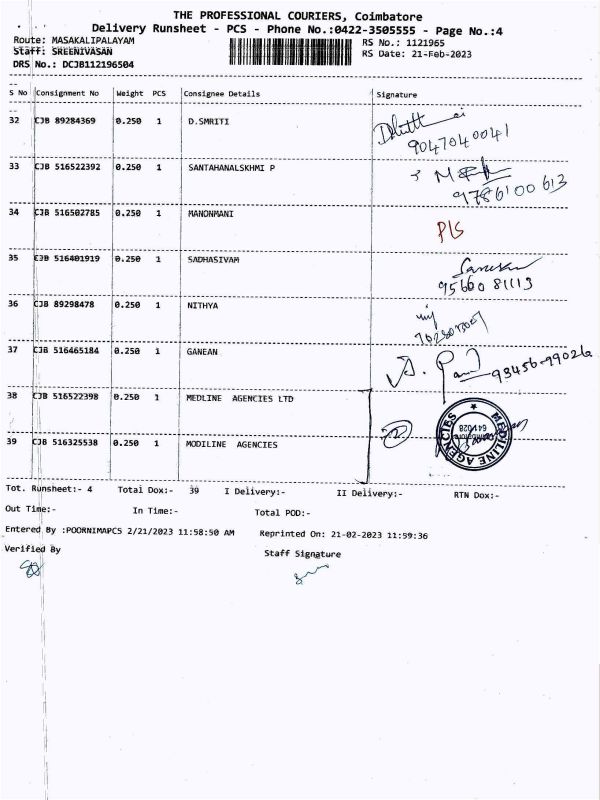 THE PROFESSIONAL COURIERS, Coimbatore
Delivery Runsheet - PCS - Phone No.:0422-3505555 - Page No.:4
Route: MASAKALIPALAYAM
RS No.: 1121965
Staff: SREENIVASAN
RS Date: 21-Feb-2023
DRS No.: DCJB112196504
S No Consignment No Weight PCS Consignee Details Signature
32 CJB 89284369 0.250 1 D.SMRITI
9047040041
33 CJB 516522392 0.250 1 SANTAHANALSKHMI P
9786100613
34 CJB 516502785 0.250 1 MANONMANI P/S
35 CJB 516401919 0.250 1 SADHASIVAM
95660 81113
36 CJB 89298478 0.250 1 NITHYA
37 CJB 516465184 0.250 1 GANEAN
93456-99026
38 CJB 516522398 0.250 1 MEDLINE AGENCIES LTD
39 CJB 516325538 0.250 1 MODILINE AGENCIES
MEDILINE AGENCIES
641 028
Tot. Runsheet:- 4 Total Dox:- 39 I Delivery:- II Delivery:- RTN Dox:-
Out Time:- In Time:- Total POD:-
Entered By :POORNIMAPCS 2/21/2023 11:58:50 AM Reprinted On: 21-02-2023 11:59:36
Verified By Staff Signature